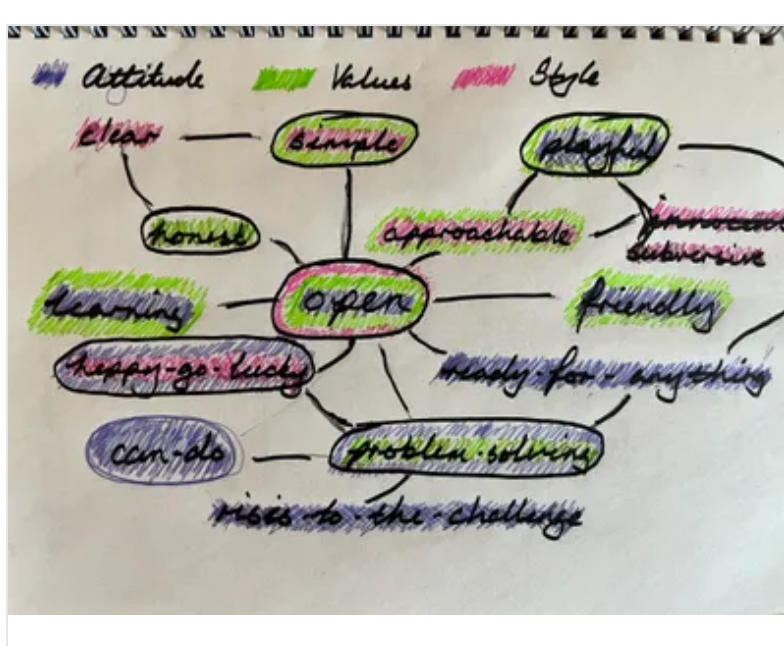 Attitude Values Style
clear simple playful
honest approachable
subversive
learning open friendly
happy-go-lucky ready-for-anything
can-do problem-solving
rises-to-the-challenge